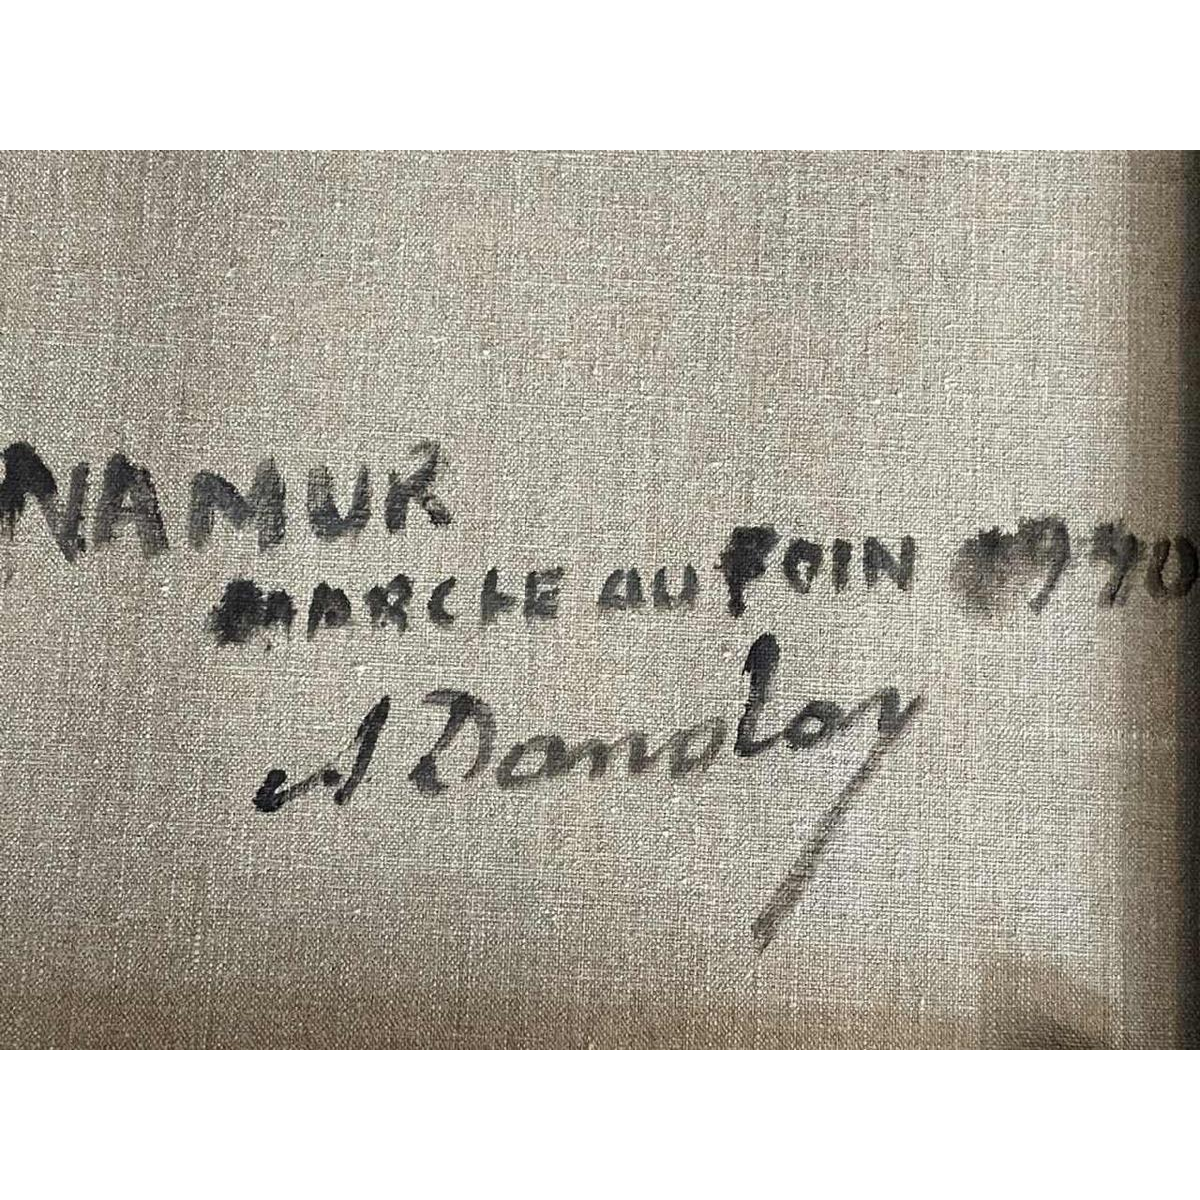 NAMUR
MARCHE AU FOIN 1990
A Dandoy